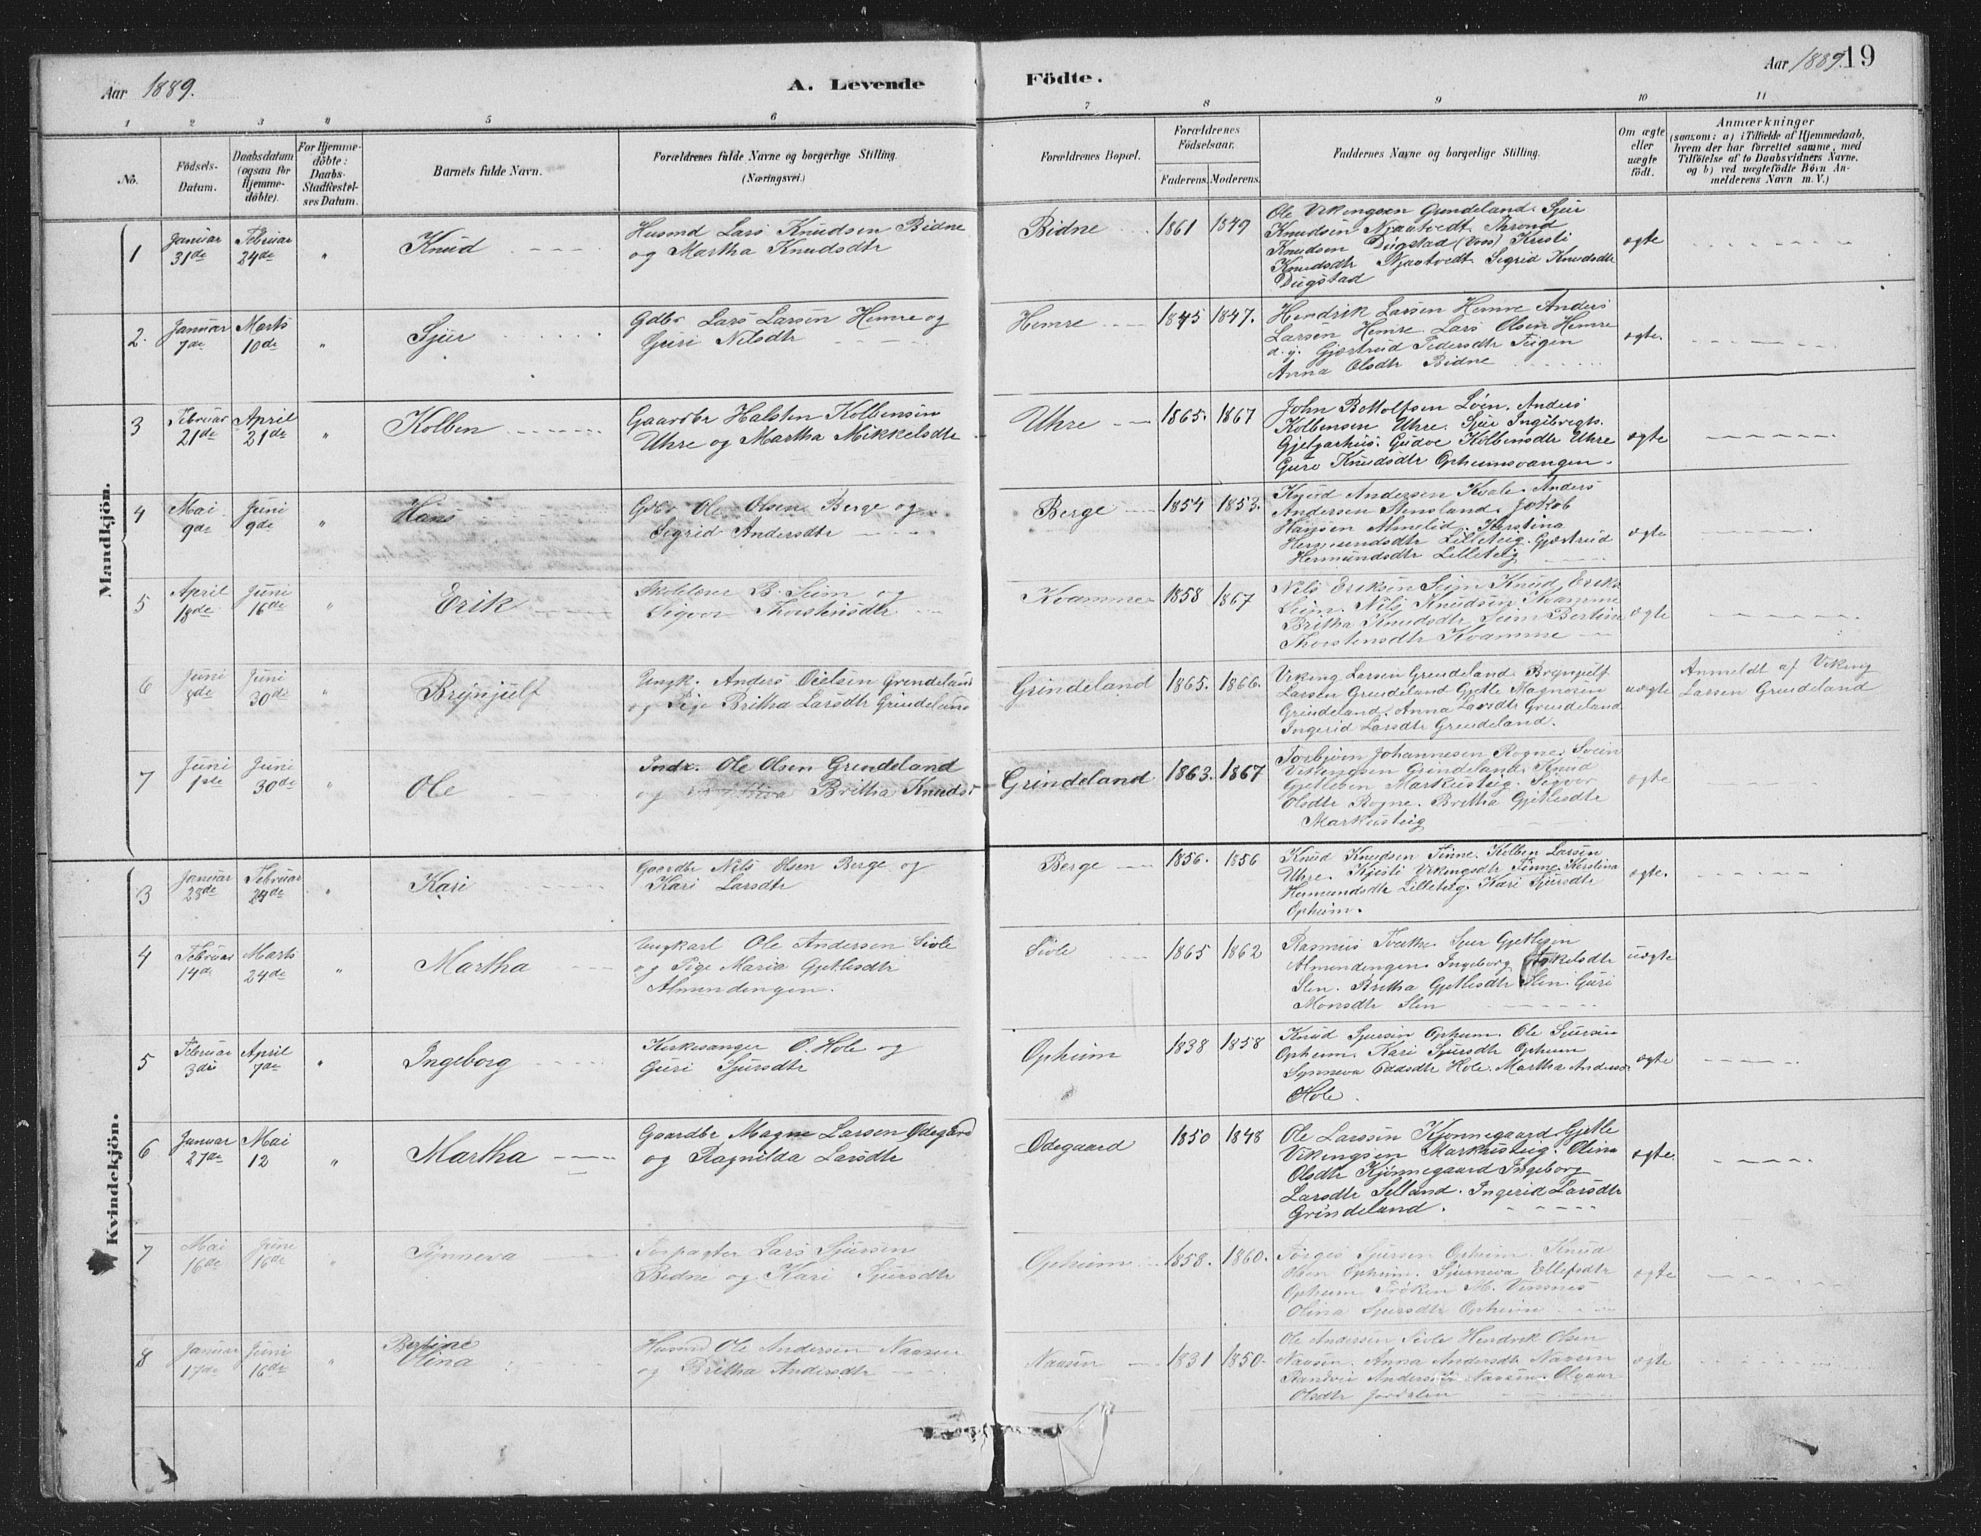 Aar 1889.
A. Levende Födte.
Aar 1889.
19
1 2 3 4 5 6 7 8 9 10 11
No.
Födsels-
Datum.
Daabsdatum
(ogsaa for
Hjemme-
döbte).
For Hjemme-
döbte:
Daabs-
Stadfæstel-
ses Datum.
Barnets fulde Navn.
Forældrenes fulde Navne og borgerlige Stilling.
(Næringsvei.)
Forældrenes Bopæl.
Forældrenes
Födselsaar.
Faderens. Moderens.
Faddernes Navne og borgerlige Stilling.
Om ægte
eller
uægte
födt.
Anmærkninger
(saasom: a) i Tilfælde af Hjemmedaab,
hvem der har forrettet samme, med
Tilföielse af to Daabsvidners Navne,
og b) ved uægtefödte Börn An-
melderens Navn m. V.)
Mandkjön.
1
Januar
31de
Februar
24de
"
Knud
Husmd Lars Knudsen Bidne
og Martha Knudsdtr
Bidne
1861
1849
Ole Vikingsen Grindeland. Sjur
Knudsen Njaatvedt. Thrond
Knudsen Dugstad (Vos) Kristi
Knudsdtr Njaatvedt. Sigrid Knudsdtr
Dugstad
ægte
2.
Januar
7de
Marts
10de
"
Sjur
Gdbr Lars Larsen Hemre og
Guri Nilsdtr
Hemre
1845
1847.
Hendrik Larsen Hemre Anders
Larsen Hemre. Lars Olsen Hemre
d.y. Gjertrud Pedersdtr Teigen
Anna Olsdtr Bidne
ægte.
3
Februar
21de
April
21de
"
Kolben
Gaardbr Halsten Kolbensen
Uhre og Martha Mikkelsdtr
Uhre
1865.
1867
John Bottolfsen Löen. Anders
Kolbensen Uhre. Sjur Ingebregts.
Gjelgarhus. Gudve Kolbensdtr Uhre
Guro Knudsdtr Opheimsvangen.
ægte
4
Mai
9de
Juni
9de
"
Hans
Gdbr Ole Olsen Berge og
Sigrid Andersdtr
Berge
1854
1853.
Knud Andersen Kvale. Anders
Andersen Stensland. Jakob
Hansen Almelid. Kerstina
Hermundsdtr Lilleteig. Gjertrud
Hermundsdtr Lilleteig
ægte
5
April
18de
Juni
16de
"
Erik
Skolelærer B. Seim og
Sigvor Thorstensdtr
Kvamme
1858
1867
Nils Eriksen Seim Knud Eriks.
Seim. Nils Knudsen Kvamme
Britha Knudsdtr Seim Bertine
Thorstensdtr Kvamme
ægte
6
Juni
8de
Juni
30de
"
Brynjulf
Ungk. Anders Nielsen Grendeland
og Pige Britha Larsdtr Grindeland
Grindeland
1865.
1866.
Viking Larsen Grendeland Brynjulf
Larsen Grendeland Gjetle Magnesen
Grindeland. Anna Larsdtr Grendeland
Ingerid Larsdtr Grendeland.
uægte
Anmeldt af Viking
Larsen Grendeland
7
Juni
1ste
Juni
30de
"
Ole
Indr. Ole Olsen Grendeland
og Britha Knudsd
Grindeland
1863.
1867
Torbjörn Johannesen Rogne. Svein
Vikingsen Grindeland. Knud
Gjetlesen Markusteig. Sigvor
Olsdtr Rogne. Britha Gjetlesdtr
Markusteig
ægte
Kvindekjön.
3
Januar
28de
Februar
24de
"
Kari
Gaardbr Nils Olsen Berge og
Kari Larsdtr
Berge
1856.
1856
Knud Knudsen Finne. Kolben Larsen
Uhre. Kjesti Vikingsdtr Finne. Kerstina
Hermundsdtr Lilleteig. Kari Sjursdtr
Opheim.
ægte.
4
Februar
14de
Marts
24de
"
Martha
Ungkarl Ole Andersen Sivle
og Pige Maria Gjetlesdtr
Almendingen.
Sivle
1865
1862
Rasmus Tvethe. Sjur Gjetlesen
Almendingen. Ingeborg Askelsdtr
Slen. Britha Gjetlesdtr Slen. Guri
Monsdtr Slen
uægte
5
Februar
3die
April
7de
"
Ingeborg
Kirkesanger O. Hole og
Guri Sjursdtr
Opheim
1838
1858
Knud Sjursen Opheim. Ole Sjursen
Opheim. Kari Sjursdtr Opheim
Synneva Oddsdtr Hole. Martha Andersd
Hole.
ægte
6
Januar
27de
Mai
12
"
Martha
Gaardbr Magne Larsen Ødegård
og Ragnilda Larsdtr
Ødegaard
1850
1848
Ole Larssen Kjønnegaard Gjetle
Vikingsen Markusteig. Olina
Olsdtr Kjønnegaard Ingeborg
Larsdtr Selland. Ingerid Larsdtr
Grindeland.
ægte.
7
Mai
16de
Juni
16de
"
Synneva
Forpagter Lars Sjursen
Bidne og Kari Sjursdtr
Opheim
1858.
1860.
Torgeis Sjursen Opheim. Knud
Olsen Opheim. Synneva Ellefsdtr
Opheim Fröken M. Vinsnes
Olina Sjursdtr Opheim
ægte
8
Januar
17de
Juni
16de
"
Bertine
Olina
Husmd Ole Andersen Naasen
og Britha Andersdtr
Naasen
1831
1850.
Ole Andersen Sivle Hendrik Olsen
Naasen. Anna Andersdtr Naasen
Randvei Andersdtr Naasen. Olgaar
Olsdtr Jordalen
ægte